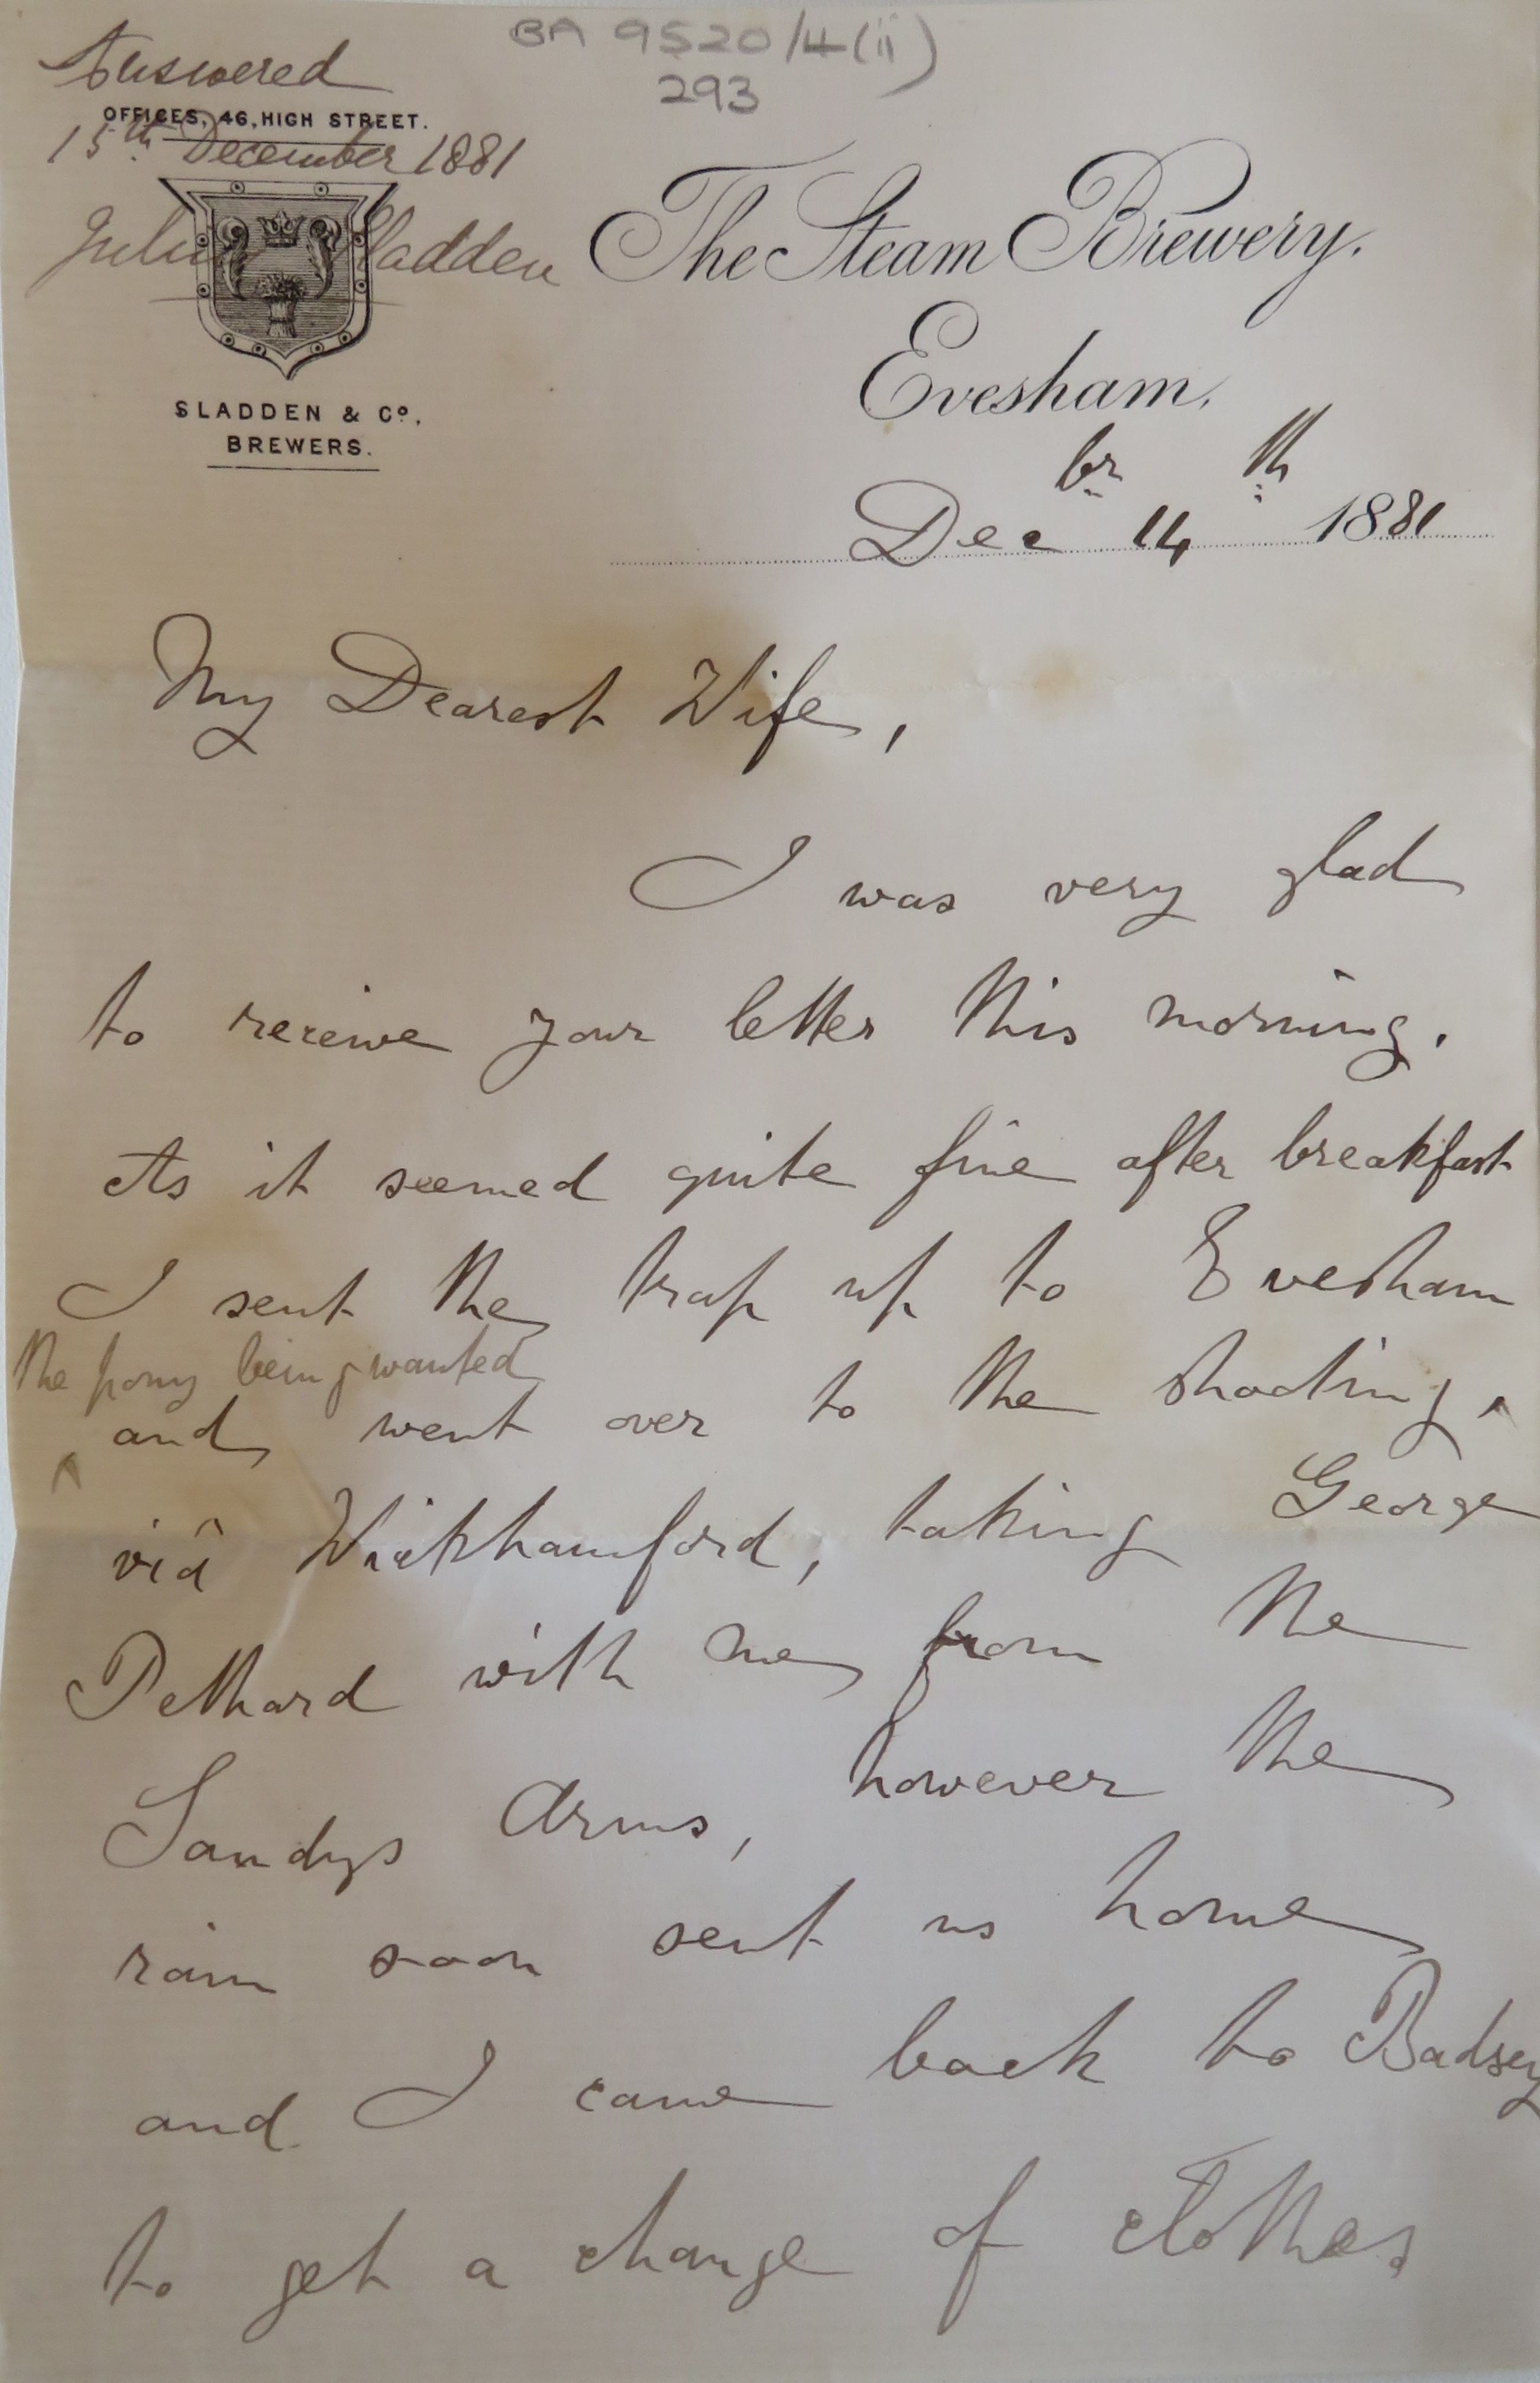 BA 9520/4(ii)
293
Answered
OFFICES, 46, HIGH STREET.
15th December 1881
Julius Sladden
SLADDEN & Co.
BREWERS.
The Steam Brewery.
Evesham.
Decbr 14th 1881
My Dearest Wife,
I was very glad
to receive your letter this morning.
As it seemed quite fine after breakfast
I sent the trap up to Evesham
the pony being wanted
and went over to the shooting,
viâ Wickhamford, taking George
Pethard with me from the
Sandys Arms, however the
rain soon sent us home
and I came back to Badsey
to get a change of clothes